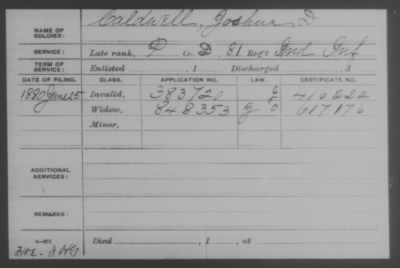 NAME OF SOLDIER: Caldwell, Joshua D.
SERVICE: Late rank, P Co. D, 81 Reg't Ind Inf
TERM OF SERVICE: Enlisted , 1 Discharged , 1
DATE OF FILING. CLASS. APPLICATION NO. LAW. CERTIFICATE NO.
1880 June 25 Invalid, 383720 416222
Widow, 848353 617176
Minor,
ADDITIONAL SERVICES:
REMARKS:
Died , 1 , at